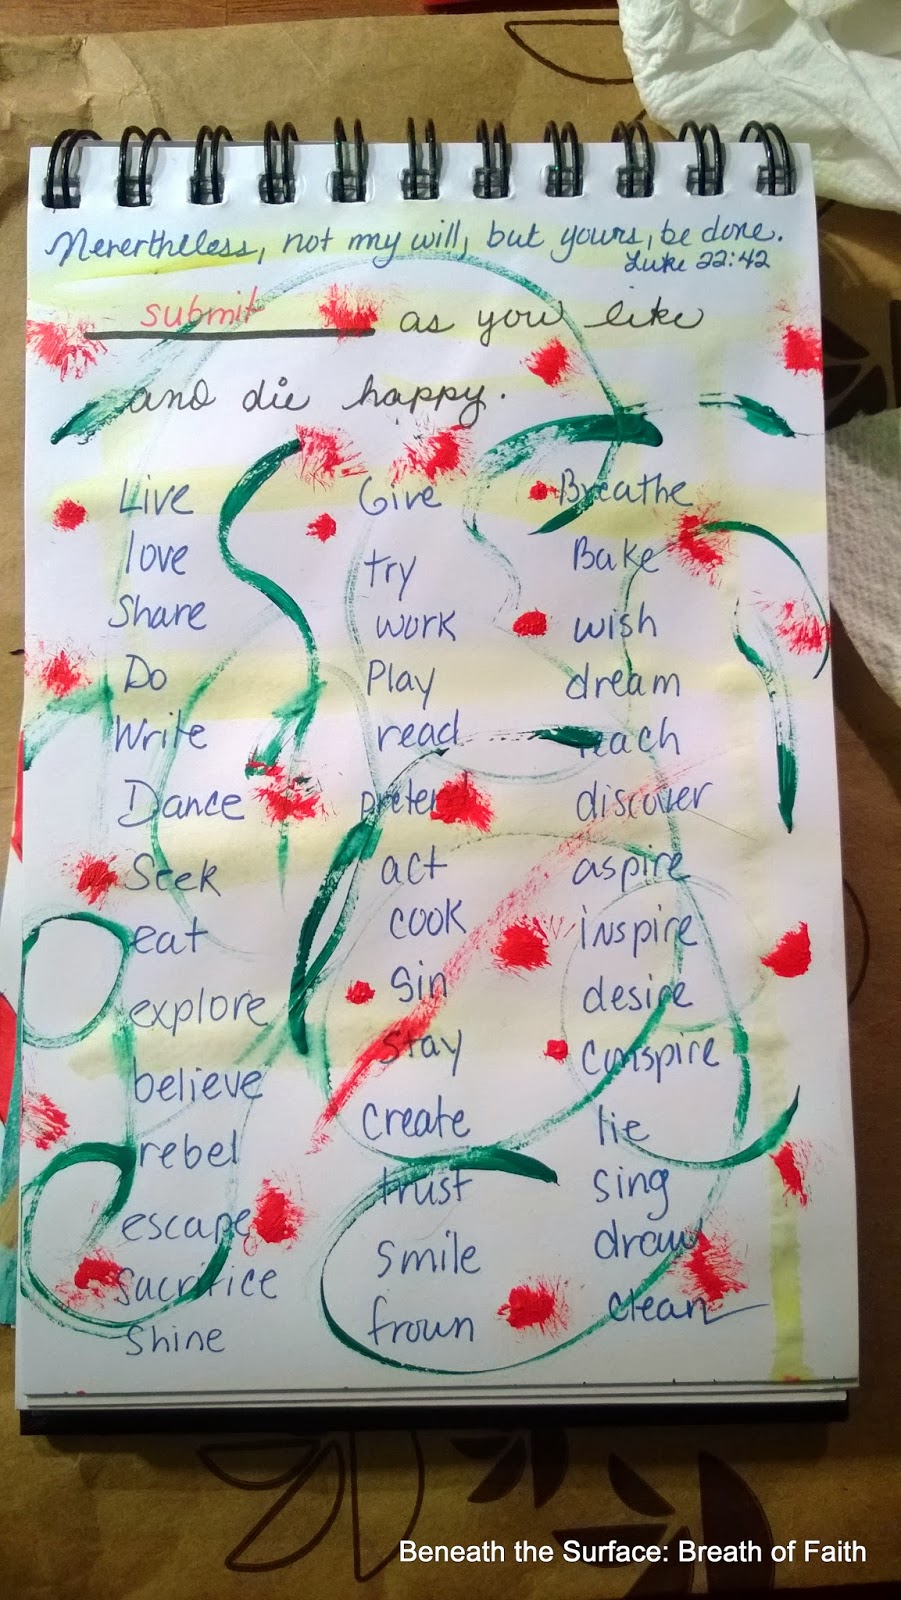 Nevertheless, not my will, but yours, be done.
Luke 22:42
submit as you like
and die happy.
Live
love
Share
Do
Write
Dance
Seek
eat
explore
believe
rebel
escape
Sacrifice
Shine
Give
try
work
Play
read
pretend
act
cook
Sin
Stay
Create
trust
Smile
frown
Breathe
Bake
wish
dream
teach
discover
aspire
inspire
desire
conspire
lie
sing
draw
clean
Beneath the Surface: Breath of Faith